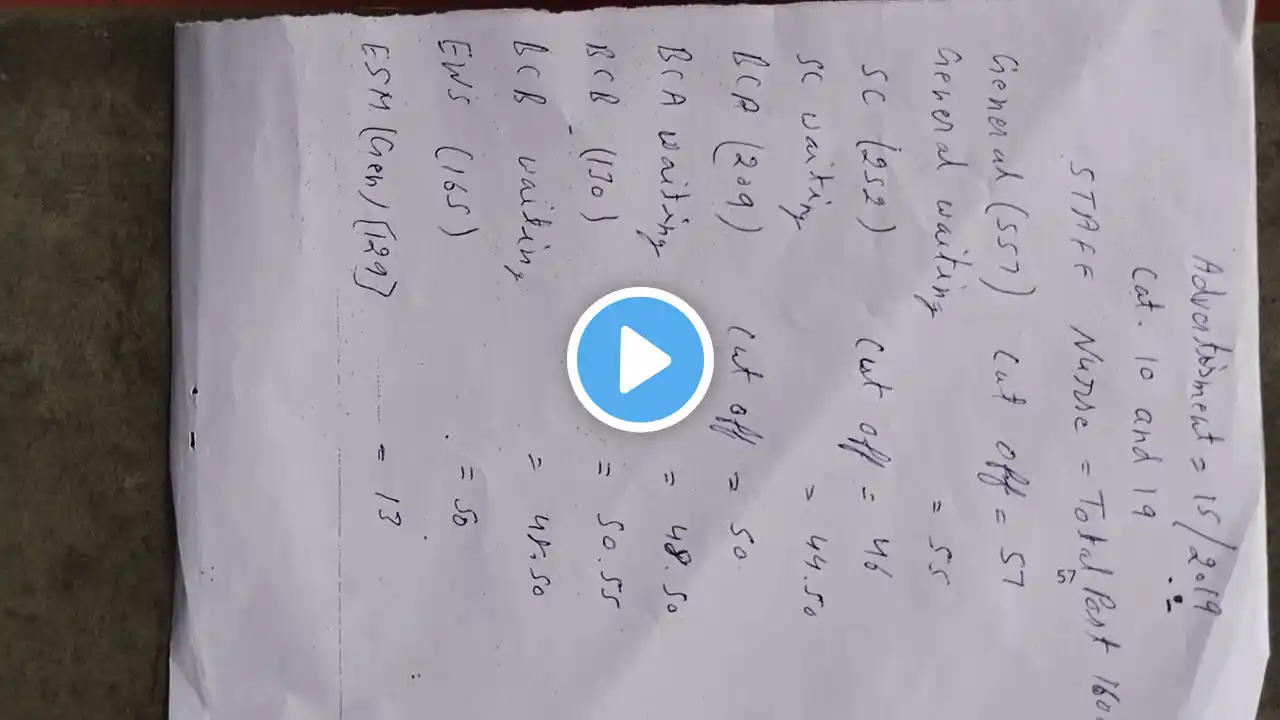 Advertisment = 15/2019
Cat. 10 and 19
STAFF Nurse = Total Post 160
General (557) Cut off = 57
General waiting = 55
SC (252) Cut off = 46
SC waiting = 44.50
BCA (209) Cut off = 50
BCA waiting = 48.50
BCB (130) = 50.55
BCB waiting
EWS (165) = 50
ESM (Gen) (129) = 13